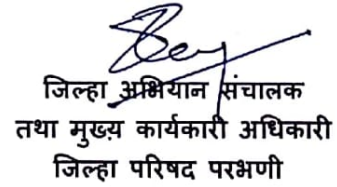 जिल्हा अभियान संचालक
तथा मुख्य कार्यकारी अधिकारी
जिल्हा परिषद परभणी